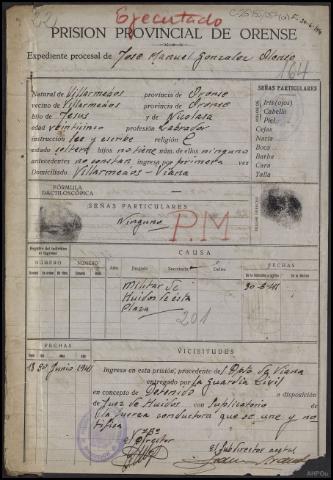 Ejecutado
PRISION PROVINCIAL DE ORENSE
Expediente procesal de Jose Manuel Gonzalez Alonso
164
Natural de Villarmeños provincia de Orense
vecino de Villarmeños provincia de Orense
hijo de Jesus y de Nicolasa
edad veintiuno profesión Labrador
instrucción lee y escribe religión C
estado soltero hijos no tiene núm. de ellos ninguno
antecedentes no constan ingresa por primera vez
Domiciliado Villarmeños - Viana
SEÑAS PARTICULARES
Iris (ojos)
Cabello
Piel
Cejas
Nariz
Boca
Barba
Cara
Talla
FÓRMULA
DACTILOSCÓPICA
SEÑAS PARTICULARES
Ninguna
P.M
Registro del individuo
al ingresar
NÚMERO
NÚMERO
CAUSA
Año
Juzgado
Secretaría
Delito
FECHAS
Militar de
Huidos de esta
Plaza
30-6-41
201
FECHAS
VICISITUDES
30 Junio 1941
Ingresa en esta prisión, procedente del Dpto. de Viana
entregado por La Guardia Civil
en concepto de Detenido a disposición
del Juez de Huidos con suplicatorio de
la fuerza conductora que se une y no
tifica
VºBº
El Director
El Subdirector acctal
AHPOu